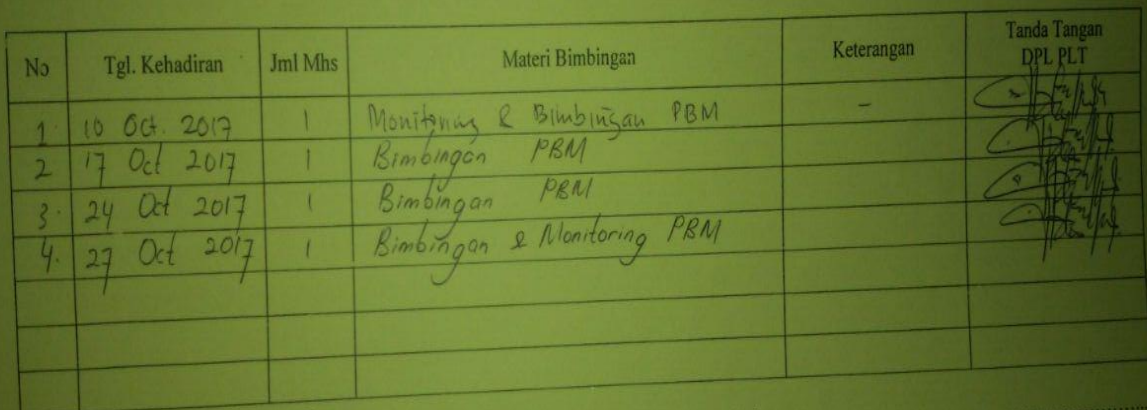 No Tgl. Kehadiran Jml Mhs Materi Bimbingan Keterangan Tanda Tangan DPL PLT
1. 10 Oct. 2017 1 Monitoring & Bimbingan PBM -
2 17 Oct 2017 1 Bimbingan PBM
3. 24 Oct 2017 1 Bimbingan PBM
4. 27 Oct 2017 1 Bimbingan & Monitoring PBM